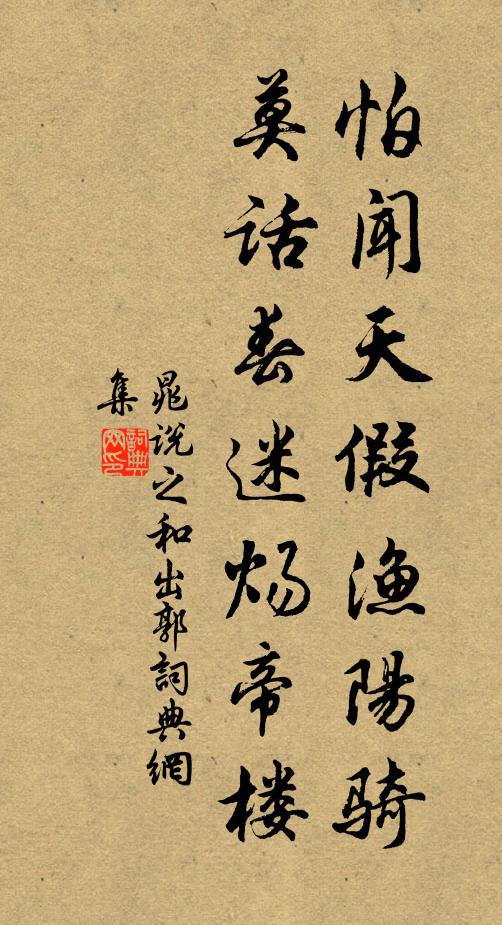 怕闻天假渔陽骑
莫话春迷炀帝楼
晁说之和出郭詞典網
集
詞典
网印